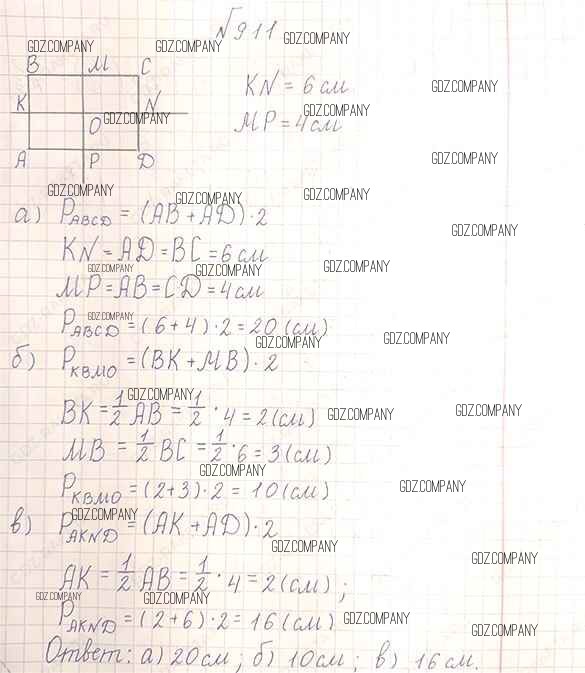 №911
GDZ.COMPANY
GDZ.COMPANY GDZ.COMPANY
B M C
KN = 6 см
GDZ.COMPANY
K N
GDZ.COMPANY GDZ.COMPANY
O
MP = 4 см
A P D
GDZ.COMPANY
GDZ.COMPANY GDZ.COMPANY GDZ.COMPANY
а) P_ABCD = (AB + AD) · 2
GDZ.COMPANY
KN = AD = BC = 6 см
GDZ.COMPANY GDZ.COMPANY GDZ.COMPANY
MP = AB = CD = 4 см
P_ABCD = (6 + 4) · 2 = 20 (см)
GDZ.COMPANY GDZ.COMPANY
б) P_KBMO = (BK + MB) · 2
GDZ.COMPANY
BK = 1/2 AB = 1/2 · 4 = 2 (см)
GDZ.COMPANY GDZ.COMPANY
MB = 1/2 BC = 1/2 · 6 = 3 (см)
GDZ.COMPANY
P_KBMO = (2 + 3) · 2 = 10 (см)
GDZ.COMPANY
GDZ.COMPANY
в) P_AKND = (AK + AD) · 2
GDZ.COMPANY
GDZ.COMPANY
AK = 1/2 AB = 1/2 · 4 = 2 (см);
GDZ.COMPANY GDZ.COMPANY
P_AKND = (2 + 6) · 2 = 16 (см)
GDZ.COMPANY GDZ.COMPANY
Ответ: а) 20 см; б) 10 см; в) 16 см.